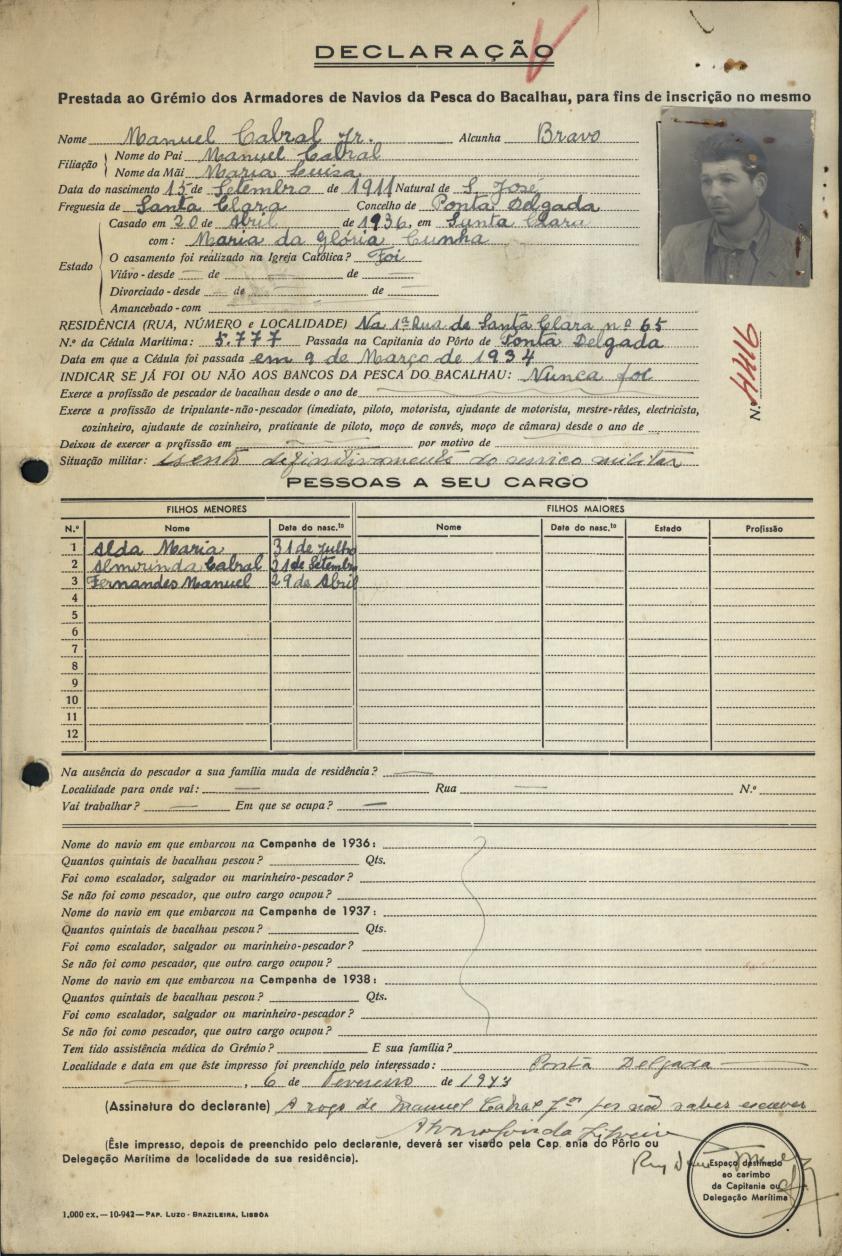 DECLARAÇÃO
Prestada ao Grémio dos Armadores de Navios da Pesca do Bacalhau, para fins de inscrição no mesmo
Nome Manuel Cabral Jr. Alcunha Bravo
Filiação Nome do Pai Manuel Cabral
Nome da Mãi Maria Luisa
Data do nascimento 15 de Setembro de 1911 Natural de S. José
Freguesia de Santa Clara Concelho de Ponta Delgada
Casado em 20 de Abril de 1936, em Santa Clara
com: Maria da Glória Cunha
Estado O casamento foi realizado na Igreja Católica? Foi
Viúvo - desde — de — de —
Divorciado - desde — de — de —
Amancebado - com
RESIDÊNCIA (RUA, NÚMERO e LOCALIDADE) Na 1ª Rua de Santa Clara nº 65
N.º da Cédula Marítima: 5.777 Passada na Capitania do Pôrto de Ponta Delgada
Data em que a Cédula foi passada em 9 de Março de 1934
INDICAR SE JÁ FOI OU NÃO AOS BANCOS DA PESCA DO BACALHAU: Nunca foi
N.º 4416
Exerce a profissão de pescador de bacalhau desde o ano de
Exerce a profissão de tripulante-não-pescador (imediato, piloto, motorista, ajudante de motorista, mestre-rêdes, electricista,
cozinheiro, ajudante de cozinheiro, praticante de piloto, moço de convés, moço de câmara) desde o ano de
Deixou de exercer a profissão em por motivo de
Situação militar: isento definitivamente do serviço militar
PESSOAS A SEU CARGO
FILHOS MENORES FILHOS MAIORES
N.º Nome Data do nasc.to Nome Data do nasc.to Estado Profissão
1 Alda Maria 31 de Julho
2 Almorinda Cabral 21 de Setembro
3 Fernandes Manuel 29 de Abril
4
5
6
7
8
9
10
11
12
Na ausência do pescador a sua família muda de residência? —
Localidade para onde vai: — Rua — N.º
Vai trabalhar? — Em que se ocupa? —
Nome do navio em que embarcou na Campanha de 1936:
Quantos quintais de bacalhau pescou? Qts.
Foi como escalador, salgador ou marinheiro-pescador?
Se não foi como pescador, que outro cargo ocupou?
Nome do navio em que embarcou na Campanha de 1937:
Quantos quintais de bacalhau pescou? Qts.
Foi como escalador, salgador ou marinheiro-pescador?
Se não foi como pescador, que outro cargo ocupou?
Nome do navio em que embarcou na Campanha de 1938:
Quantos quintais de bacalhau pescou? Qts.
Foi como escalador, salgador ou marinheiro-pescador?
Se não foi como pescador, que outro cargo ocupou?
Tem tido assistência médica do Grémio? E sua família?
Localidade e data em que êste impresso foi preenchido pelo interessado: Ponta Delgada —
—, 6 de Fevereiro de 1943
(Assinatura do declarante) A rogo de Manuel Cabral Jor por não saber escrever
(Êste impresso, depois de preenchido pelo declarante, deverá ser visado pela Cap. ania do Pôrto ou
Delegação Marítima da localidade da sua residência).
Espaço destinado
ao carimbo
da Capitania ou
Delegação Marítima
1.000 ex. — 10-942 — PAP. LUZO-BRAZILEIRA, LISBÔA